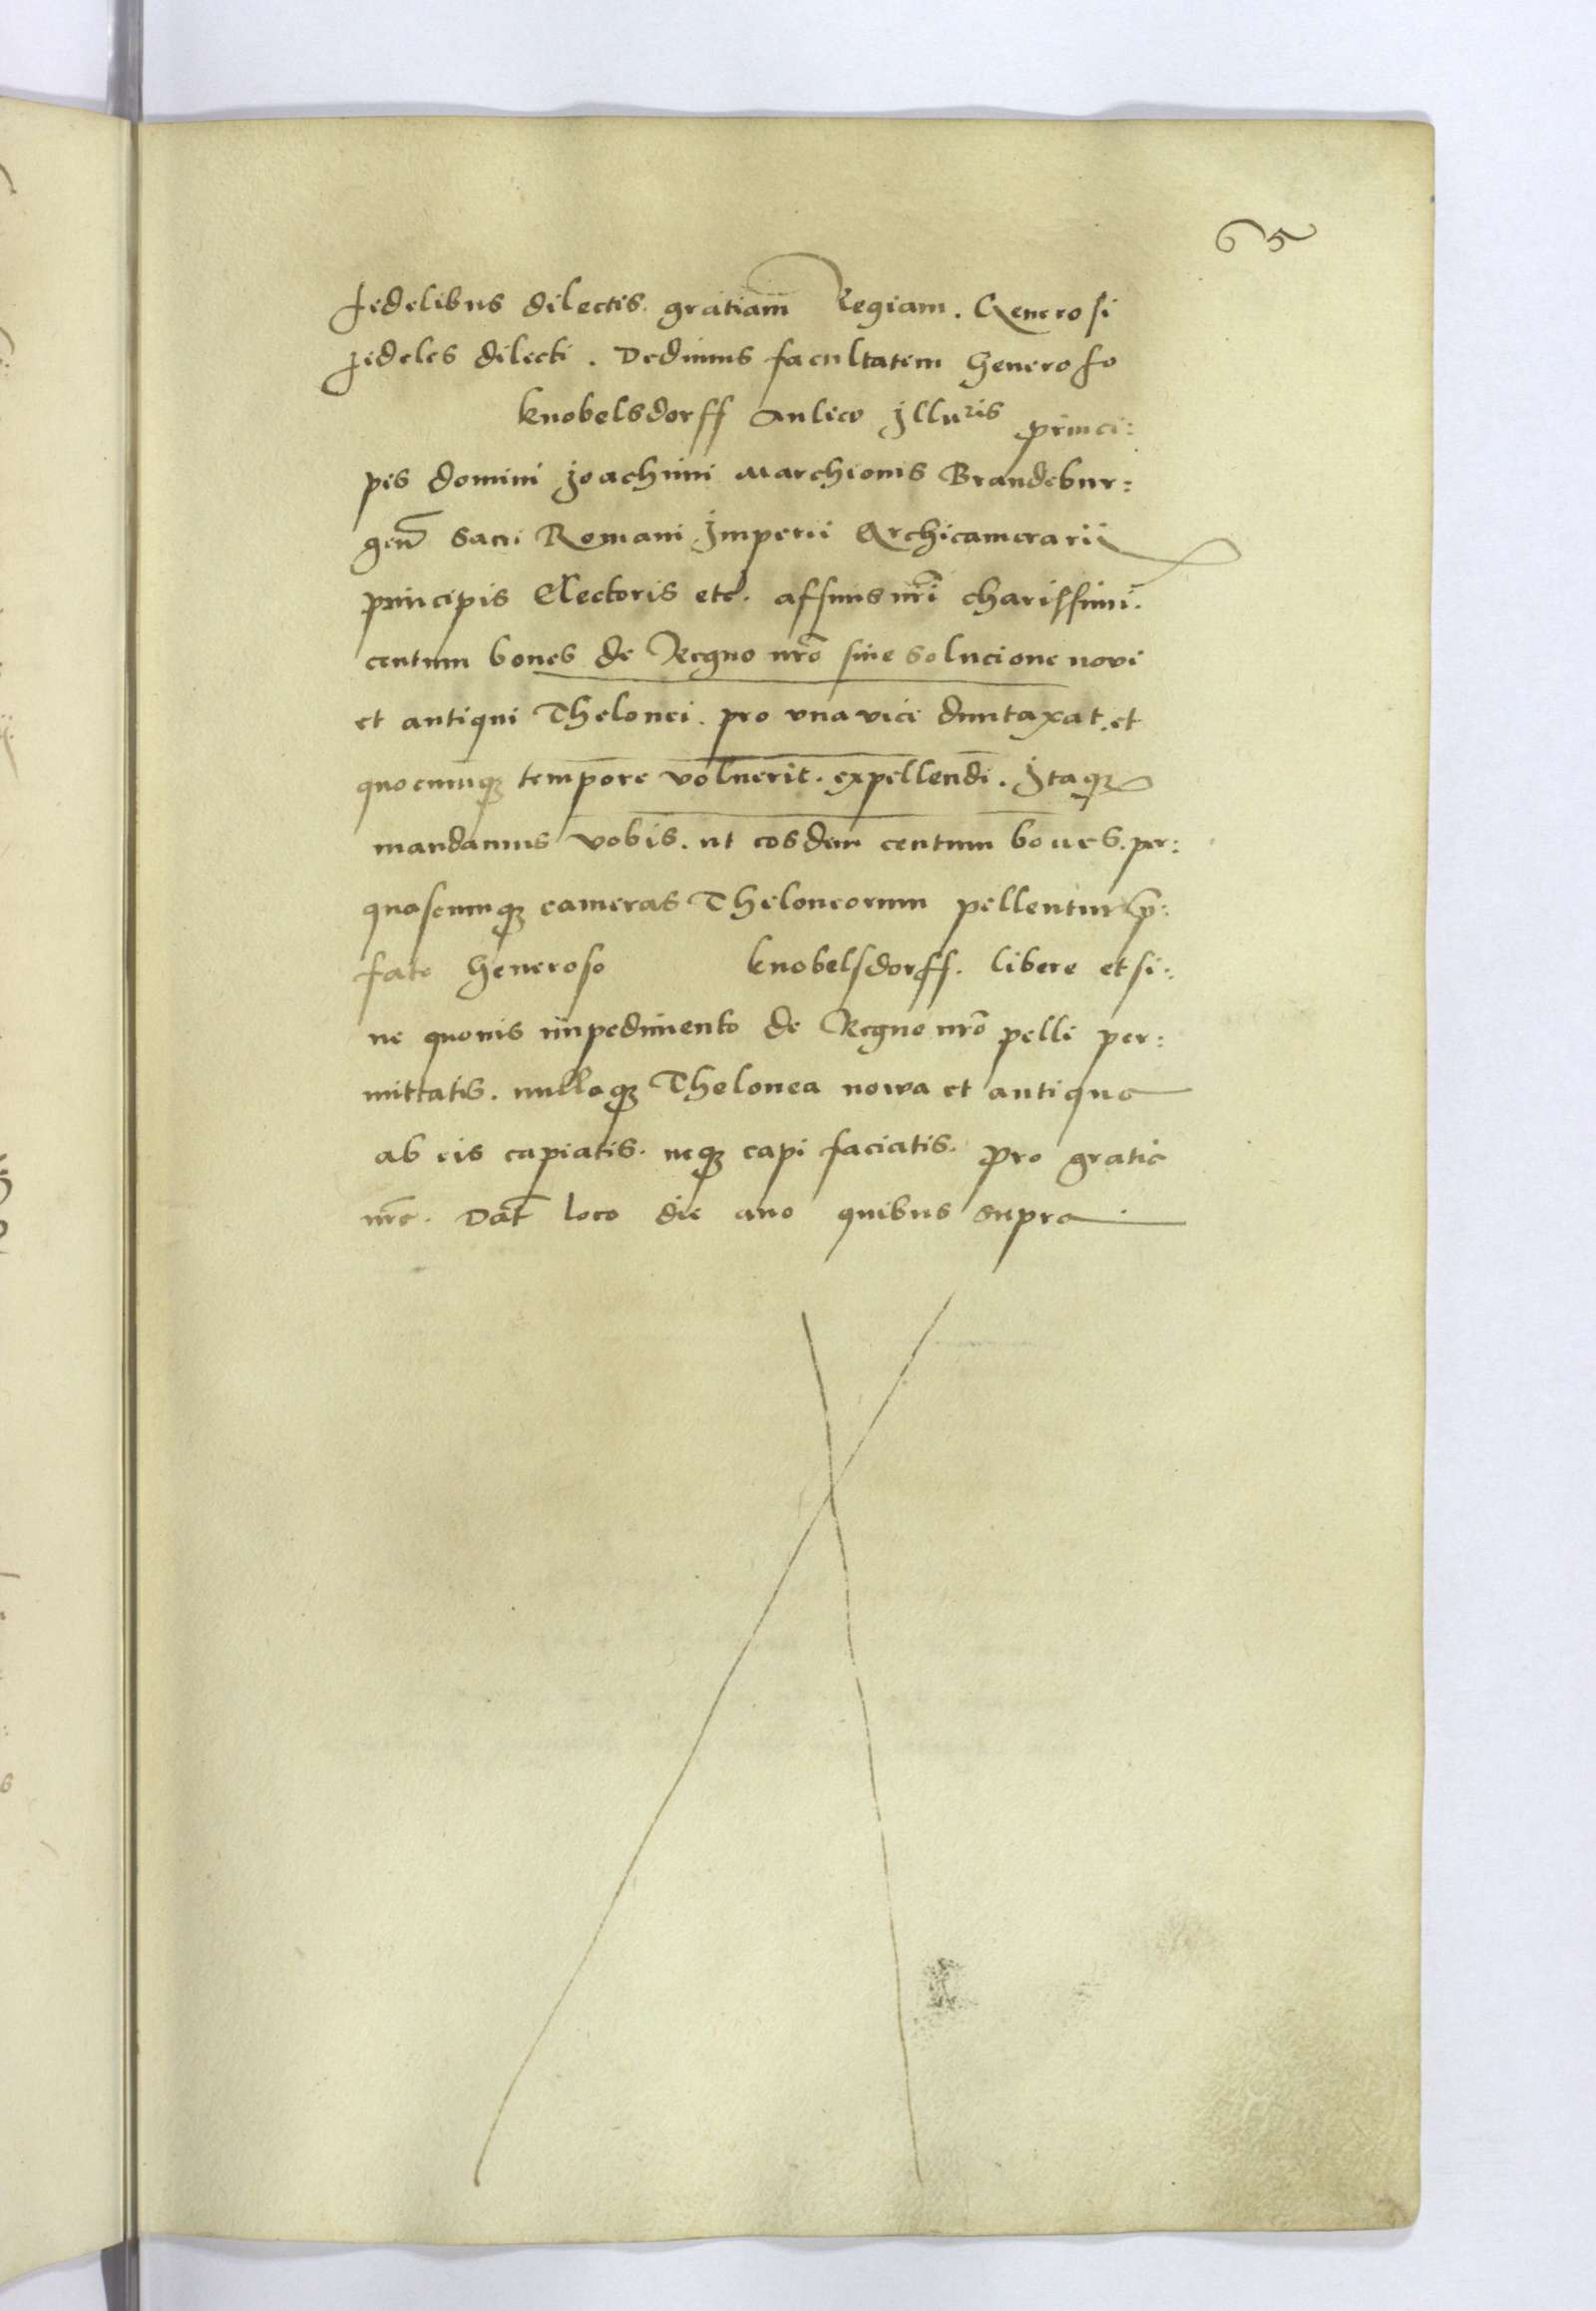 65
fidelibus dilectis. gratiam Regiam. Generosi
fideles dilecti. Dedimus facultatem Generoso
Knobelsdorff Aulico Illuris princi:
pis domini Joachimi Marchionis Brandebur:
gen̄ Sacri Romani Imperii Archicamerarii
principis Electoris etc. affinis nr̄i charissimi.
centum boues de Regno nrō sine solucione novi
et antiqui Thelonei. pro vna vice duntaxat. et
quocunqȝ tempore voluerit. expellendi. Itaqȝ
mandamus vobis. ut eosdem centum boues. per:
quascunqȝ cameras Theloneorum pellentur p̄:
fato Generoso Knobelsdorff. libere et si:
ne quouis impedimento de Regno nrō pelli per:
mittatis. nullaqȝ Thelonea nowa et antiqua
ab eis capiatis. neqȝ capi faciatis. pro gratia
nr̄a. Dat̄ loco die ano quibus supra